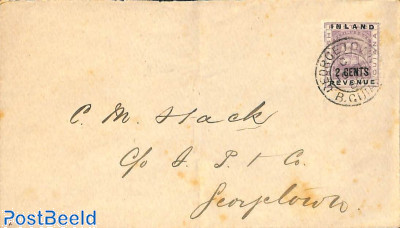 INLAND
2 CENTS
REVENUE
GEORGETO
B.GUI
C. M. Stack
c/o S. P. & Co.
Georgetown.
PostBeeld